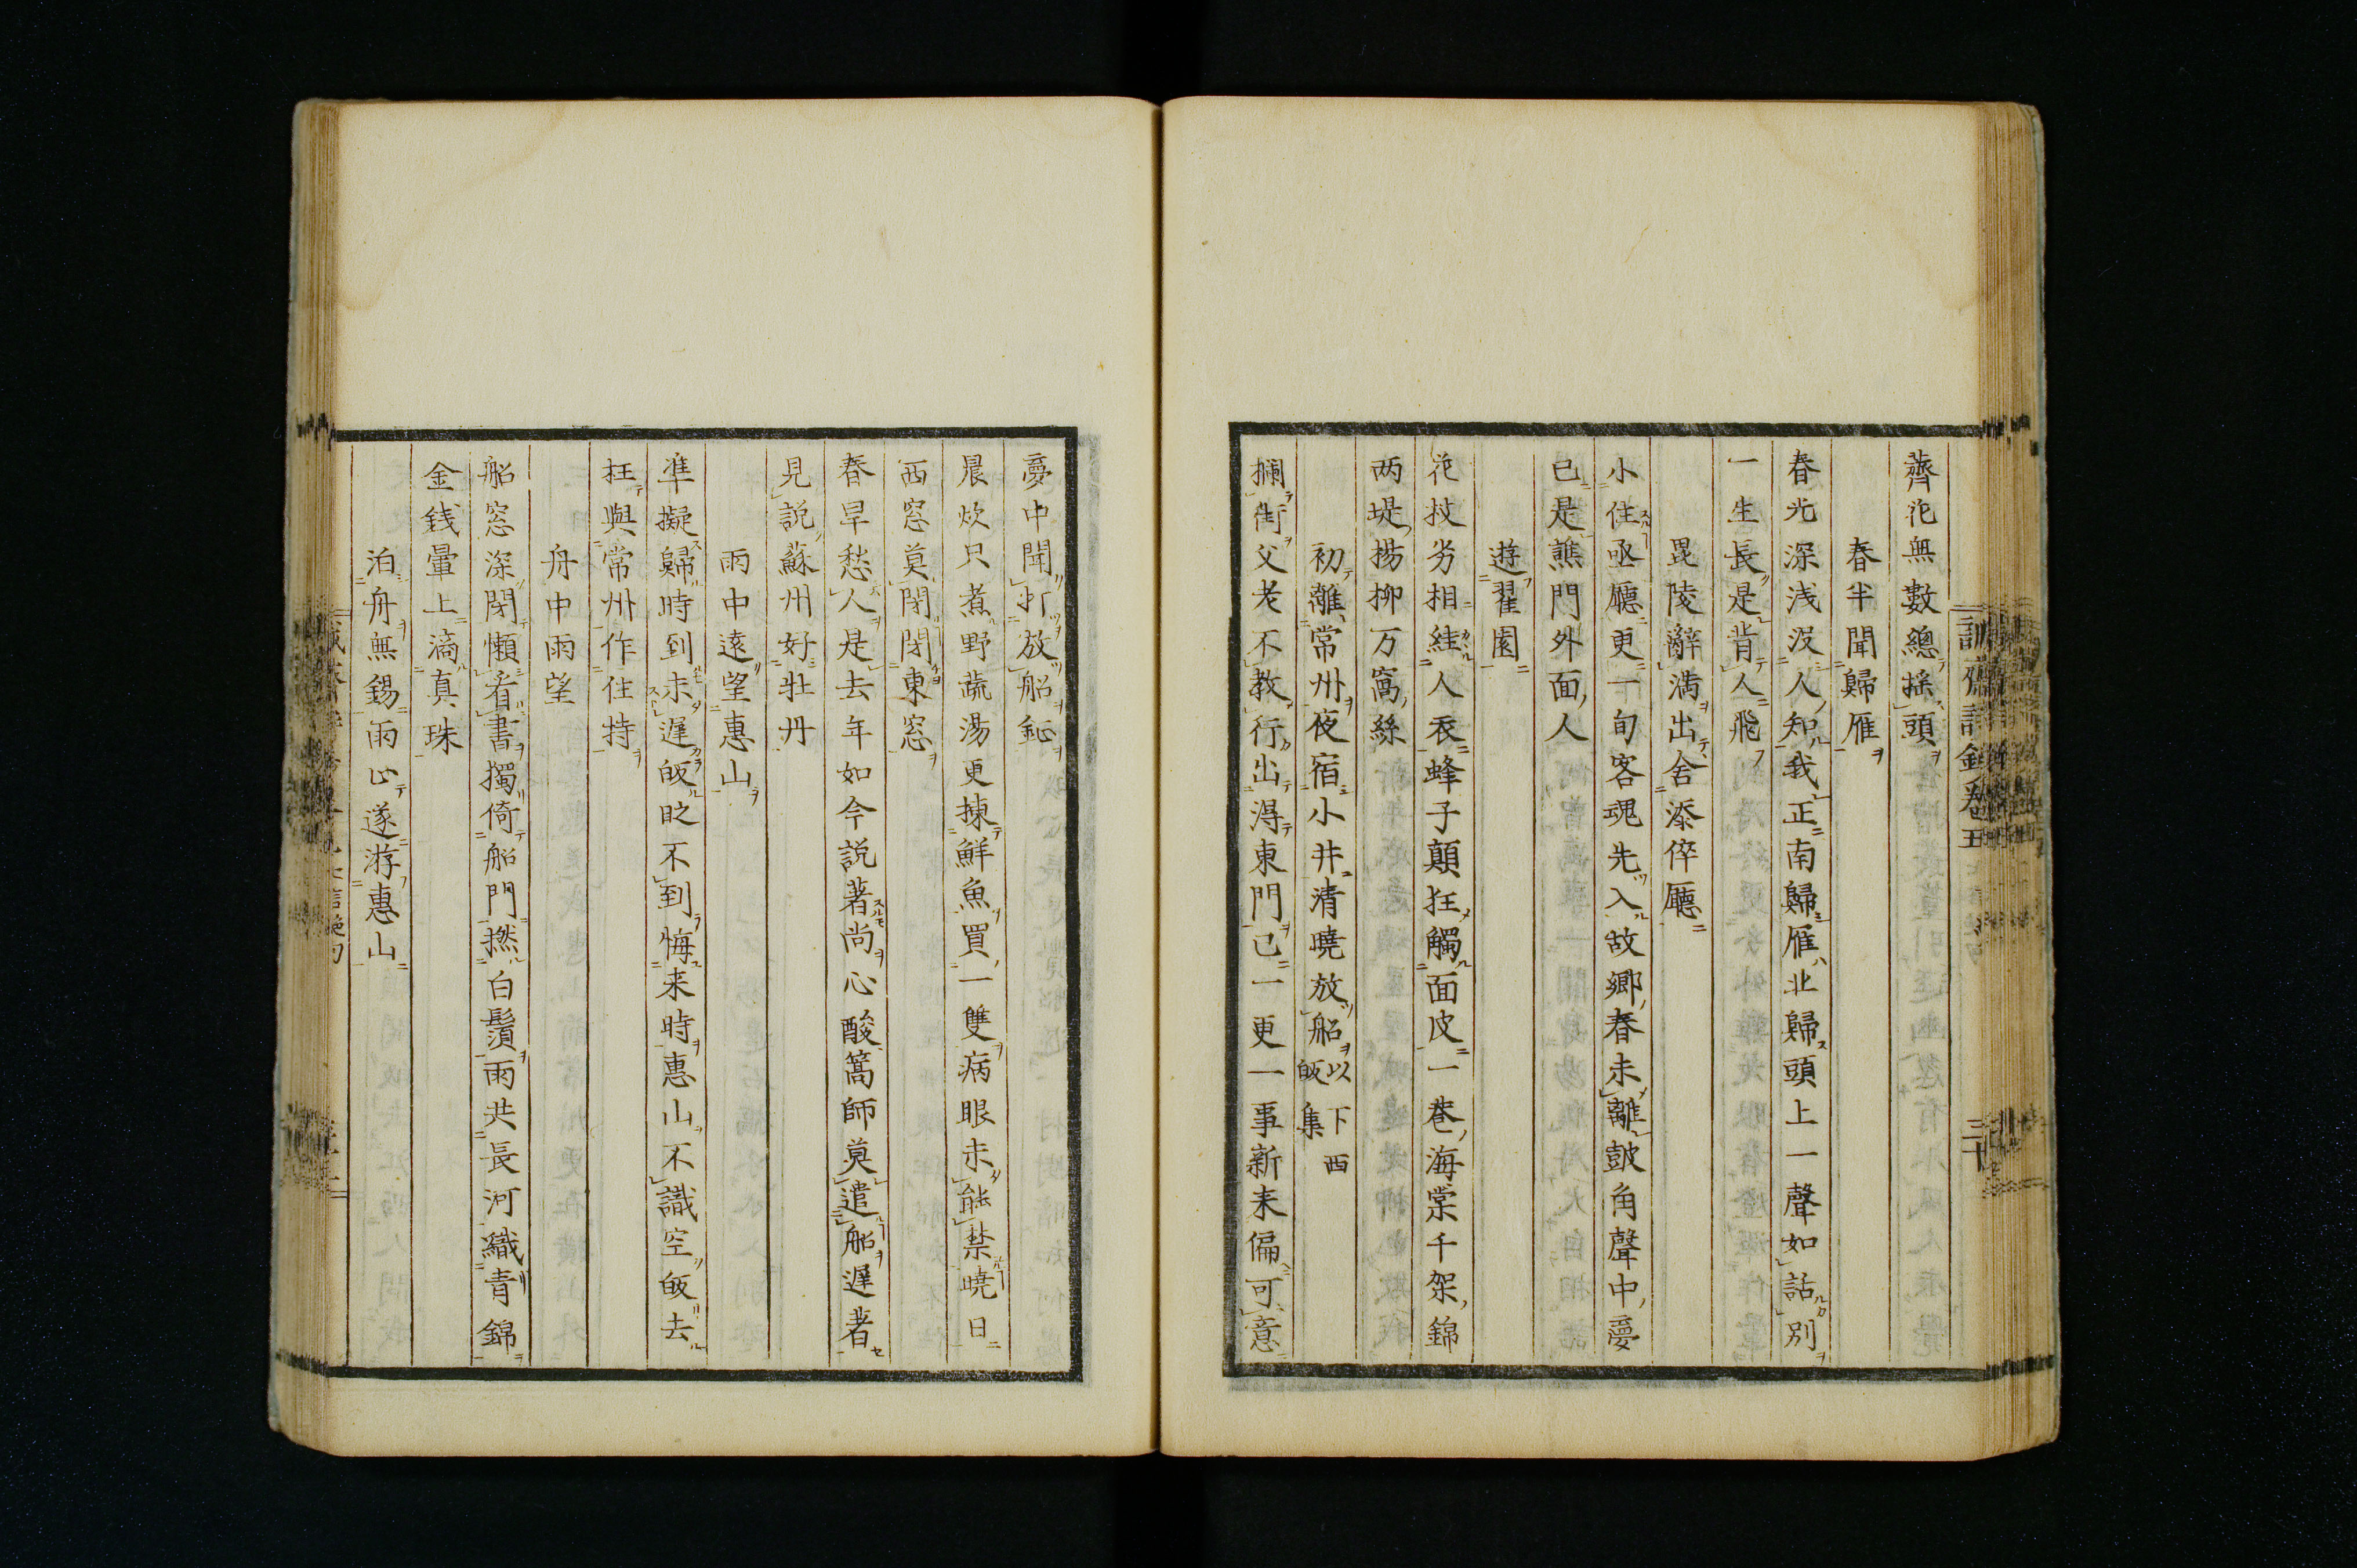 薺花無數總搖頭
春半聞歸雁
春光深浅没人知我正南歸雁北歸頭上一聲如話別
一生長是背人飛
毘陵辭満出舍添倅廳
小住亟廳更一旬客魂先入故郷春未離皷角聲中夢
已是譙門外面人
遊翟園
花枝劣相絓人衣蜂子顛狂觸面皮一巷海棠千架錦
两堤楊柳万窩絲
初離常州夜宿小井清曉放船以下西皈集
攔街父老不教行出得東門已一更一事新来偏可意
夢中聞打放船鉦
晨炊只煮野蔬湯更揀鮮魚買一雙病眼未能禁曉日
西窓莫閉閉東窓
春早愁人是去年如今説著尚心酸篙師莫遣船遅著
見説蘇州好牡丹
雨中遠望惠山
準擬歸時到未遅皈時不到悔来時惠山不識空皈去
枉與常州作住持
舟中雨望
船窓深閉懶看書獨倚船門撚白鬚雨共長河織青錦
金銭暈上滴真珠
泊舟無錫雨止遂游惠山